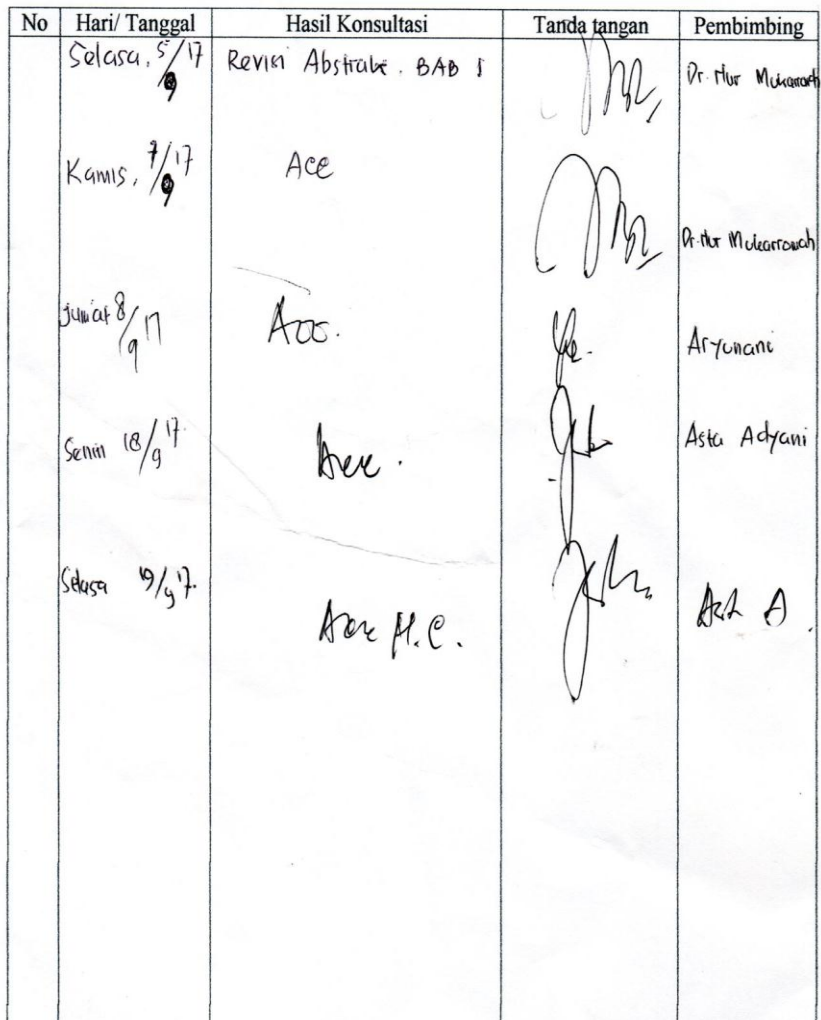 No Hari/ Tanggal Hasil Konsultasi Tanda tangan Pembimbing
Selasa, 5/9 17 Revisi Abstrak. BAB I Dr. Nur Mukarromah
Kamis, 7/9 17 Acc
Dr. Nur Mukarromah
Jumat 8/9 17 Acc. Aryunani
Senin 18/9 17. Acc. Asta Adyani
Selasa 19/9 17.
Acc H.C. Ast A.